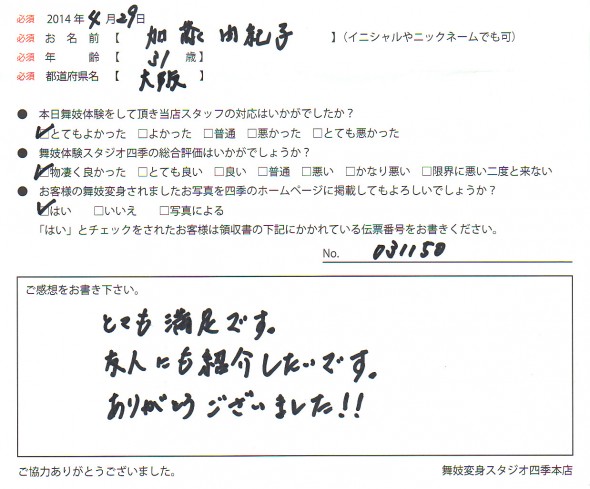 必須 2014年4月29日
必須 お名前【 加藤由紀子 】(イニシャルやニックネームでも可)
必須 年齢【 31 歳】
必須 都道府県名【 大阪 】
● 本日舞妓体験をして頂き当店スタッフの対応はいかがでしたか?
☑とてもよかった □よかった □普通 □悪かった □とても悪かった
● 舞妓体験スタジオ四季の総合評価はいかがでしょうか?
☑物凄く良かった □とても良い □良い □普通 □悪い □かなり悪い □限界に悪い二度と来ない
● お客様の舞妓変身されましたお写真を四季のホームページに掲載してもよろしいでしょうか?
☑はい □いいえ □写真による
「はい」とチェックをされたお客様は領収書の下記にかかれている伝票番号をお書きください。
No. 031150
ご感想をお書き下さい。
とても満足です。
友人にも紹介したいです。
ありがとうございました!!
ご協力ありがとうございました。 舞妓変身スタジオ四季本店